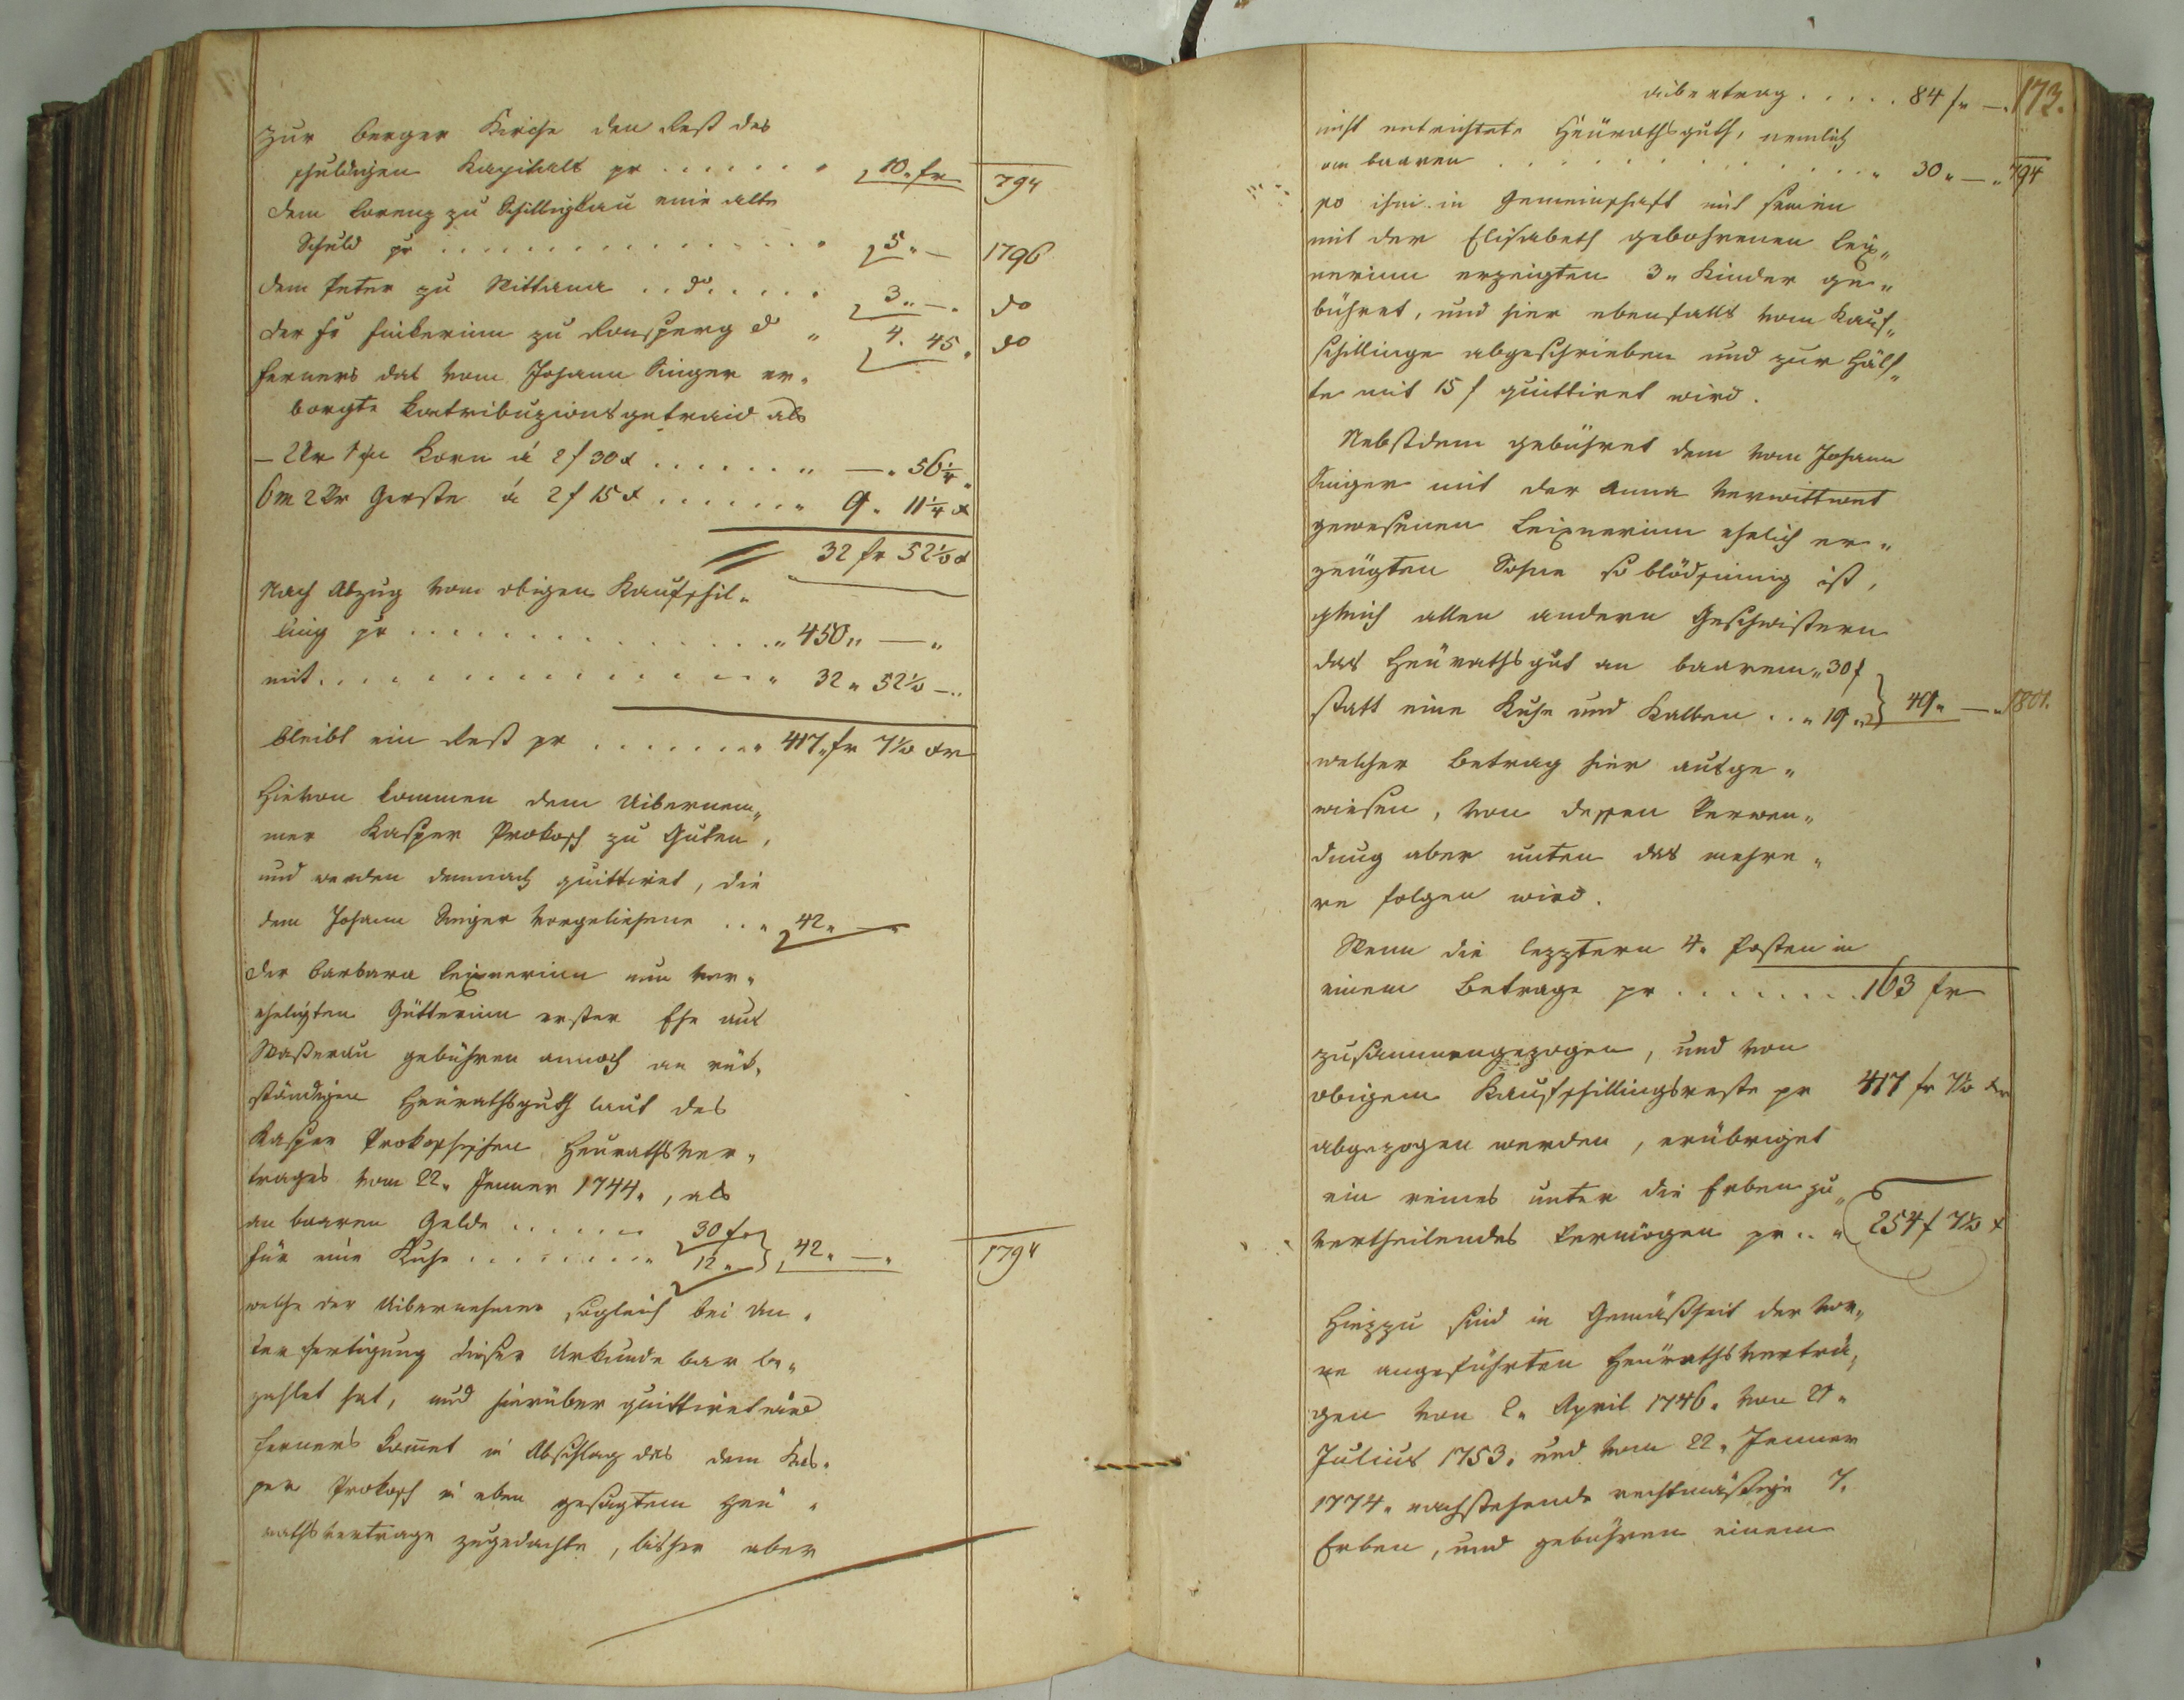 zur Berger Kirche den Rest des
schuldigen Kapitals pr . . . . . . " 10. fr 794
dem Lorenz zu Schilligkau eine alte
Schuld pr . . . . . . . . . . . . " 5 " — 1796
dem Peter zu Mittana . . do . . . . " 3 " — . do
der Fr Finkerinn zu Ronsperg do " 4. 45 " do
ferners das vom Johann Singer er„
borgte Contribuzionsgetraid als
— 2 Vr 1 Korn à 2 f 30 x . . . . . . " — . 56 1/4 "
6 m 2 Vr Gerste à 2 f 15 x . . . . . . " 9. 11 1/4 x
32 fr 52 1/2 x
Nach Abzug vom obigen Kaufschil„
ling pr . . . . . . . . . . . . . " 450 " — "
mit . . . . . . . . . . . . . . " 32 " 52 1/2 — "
bleibt ein Rest pr . . . . . . . " 417 " fr 7 1/2 xr
Hievon kommen dem Uibernem„
mer Kasper Prokosch zu Guten,
und werden demnach quittiret, die
dem Johann Singer vorgeliehene . . " 42 " —
der Barbara Leixnerinn nun ver„
ehelichten Güttlerinn erster Ehe aus
Waßerau gebühren annoch an rük„
ständigen Heurathsguth laut des
Kasper Prokoschischen Heurathsver„
trages vom 22. Jenner 1744. , als
an baaren Gelde . . . . . . 30 fr
für eine Kuhe . . . . . . . . " 12 " } 42 " — " 1794
welche der Uibernehmer sogleich bei Un„
terfertigung dieser Urkunde bar be„
zahlet hat, und hierüber quittiret wird
ferners kommet in Abschlag das dem Kas„
per Prokosch in eben gesagtem Heu„
rathsvertrage zugedachte, bisher aber
Uibertrag . . . . . 84 fr — . 173.
nicht entrichtete Heürathsguth, nemlich
an baaren . . . . . . . . . . . . " 30 " — " 794
so ihm in Gemeinschaft mit seinen
mit der Elisabeth gebohrenen Leix„
nerinn erzeigten 3 " Kinder ge„
bühret, und hier ebenfalls vom Kauf„
schillinge abgeschrieben und zur Hälf„
te mit 15 f quittiret wird.
Nebstdem gebühret dem vom Johann
Singer mit der Anna verwittwet
gewesenen Leixnerinn ehelich er„
zeügten Sohne so blödsinnig ist,
gleich allen andern Geschwistern
das Heürathsgut an baarem " 30 f
statt eine Kuhe und Kalben . . " 19 " } 49 " — " 1801.
welcher Betrag hier ausge„
wiesen, von dessen Verwen„
dung aber unten das mehre„
re folgen wird.
Wenn die lezztern 4. Posten in
einem Betrage pr . . . . . . . . 163 fr
zusammengezogen, und von
obigem Kaufschillingsreste pr 417 fr 7 1/2 xr
abgezogen werden, erübriget
ein reines unter die Erben zu„
vertheilendes Vermögen pr . . " 254 f 7 1/2 x
Hiezzu sind in Gemäßheit der vor„
re angeführten Heürathsverträ„
gen von 2. April 1746. von 21 "
Julius 1753. und vom 22. Jenner
1774. nachstehende rechtmäßige 7.
Erben, und gebühren einem